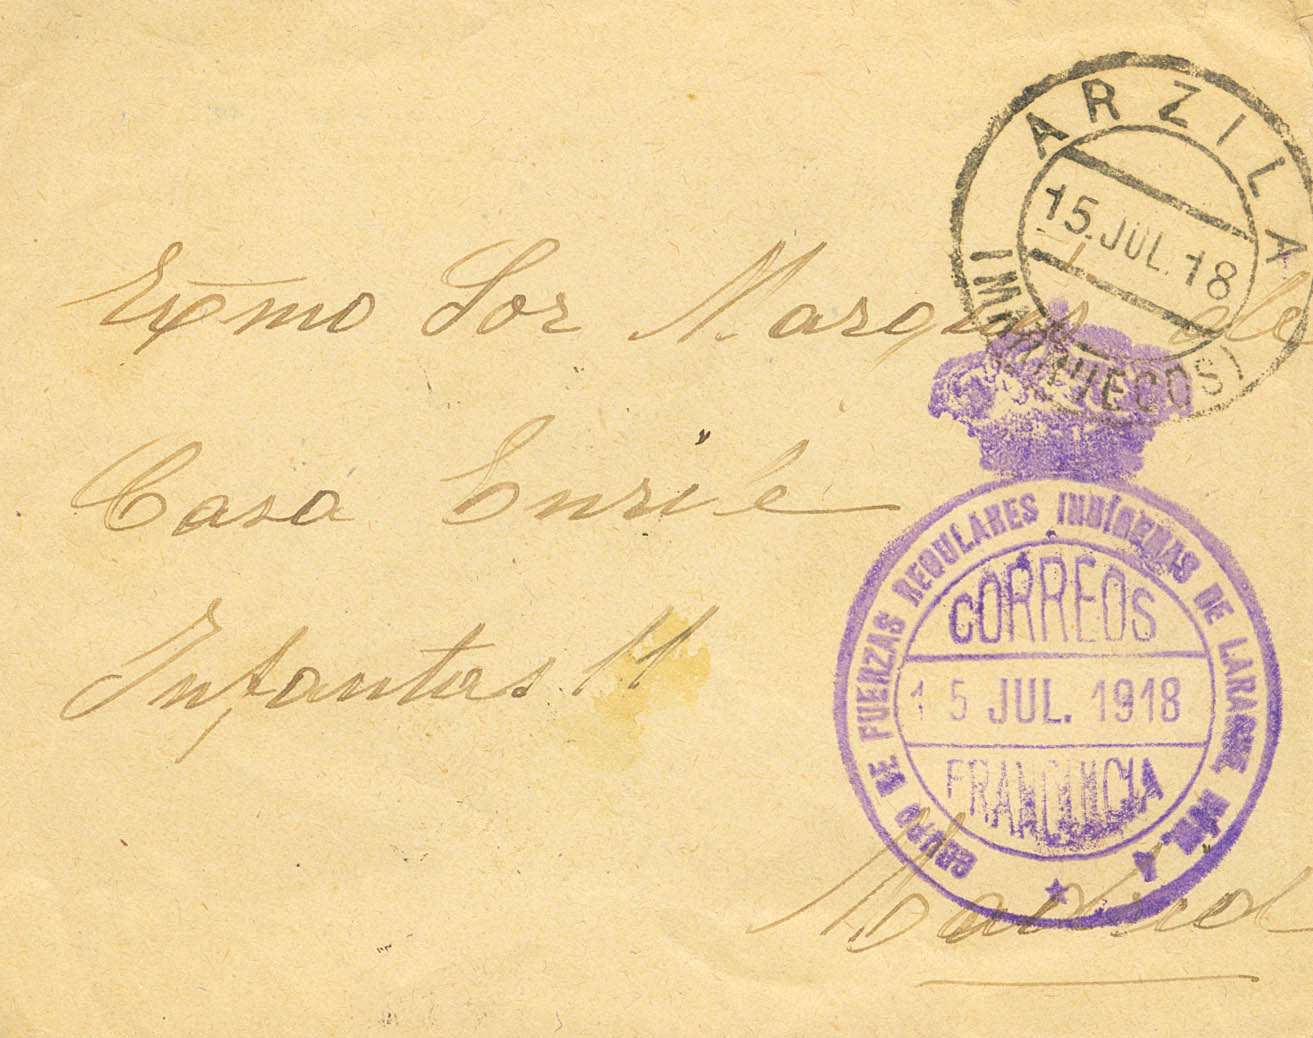 ARZILA
15.JUL.18
(MARRUECOS)
Exmo Sor Marques de
Casa Enrile
Infantas 11
GRUPO DE FUERZAS REGULARES INDÍGENAS DE LARACHE, NÚM. 4
CORREOS
15 JUL. 1918
FRANQUICIA
Madrid